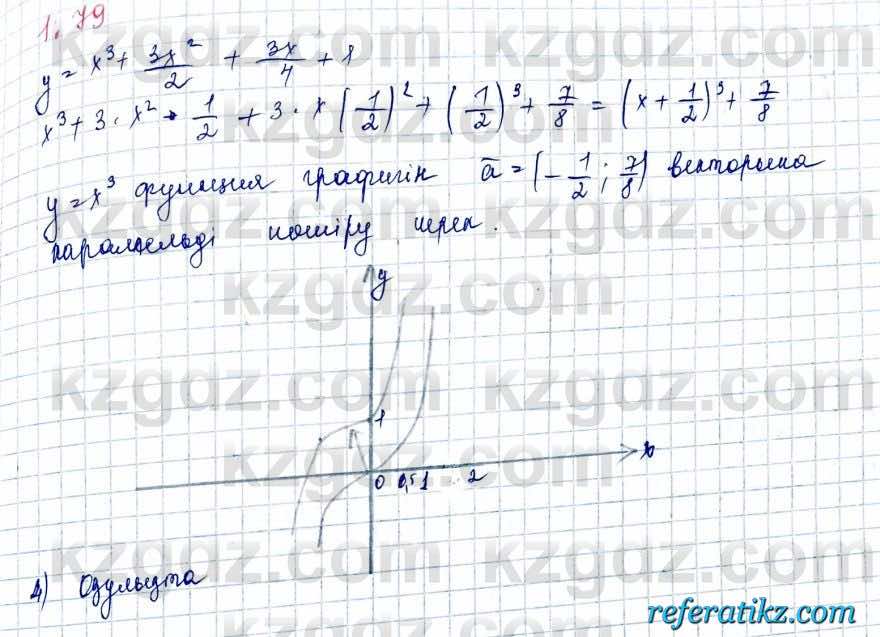 1.79
y = x³ + 3x²/2 + 3x/4 + 1
x³ + 3 · x² · 1/2 + 3 · x (1/2)² + (1/2)³ + 7/8 = (x + 1/2)³ + 7/8
y = x³ функция графигін ā = (-1/2; 7/8) векторына
параллельді көшіру керек.
y
1
x
0 0,5 1 2
4)
kzgdz.com
referatikz.com